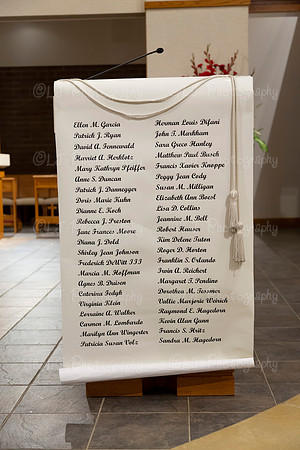 Ellen M. Garcia
Patrick J. Ryan
David A. Fennewald
Harriet A. Herklotz
Mary Kathryn Pfeiffer
Anne S. Duncan
Patrick J. Dannegger
Doris Marie Kuhn
Dianne E. Koch
Rebecca J. Preston
Jane Frances Moore
Diana J. Dold
Shirley Jean Johnson
Frederick DeWitt III
Marcia M. Hoffman
Agnes B. Duisen
Caterina Fedyk
Virginia Klein
Lorraine A. Walker
Carmen M. Lombardo
Marilyn Ann Wingerter
Patricia Susan Volz
Herman Louis Difani
John T. Markham
Sara Greco Hanley
Matthew Paul Busch
Francis Xavier Knoppe
Peggy Jean Cody
Susan M. Milligan
Elizabeth Ann Boesl
Lisa D. Collins
Jeannine M. Bell
Robert Hauser
Kim Delene Tuton
Roger D. Horton
Franklin S. Orlando
Irwin A. Reichert
Margaret T. Pendino
Dorothea M. Tessmer
Vallie Marjorie Weirich
Raymond E. Hagedorn
Kevin Alan Gunn
Francis S. Hritz
Sandra M. Hagedorn